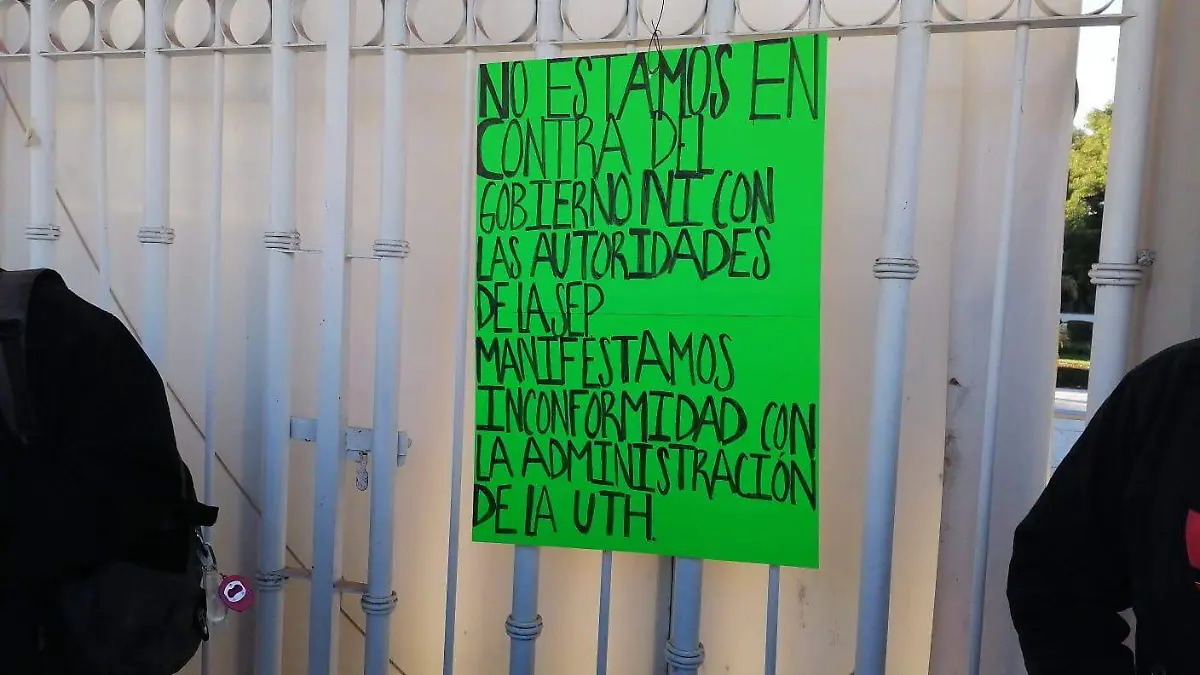 NO ESTAMOS EN
CONTRA DEL
GOBIERNO NI CON
LAS AUTORIDADES
DE LA SEP
MANIFESTAMOS
INCONFORMIDAD CON
LA ADMINISTRACIÓN
DE LA UTH.